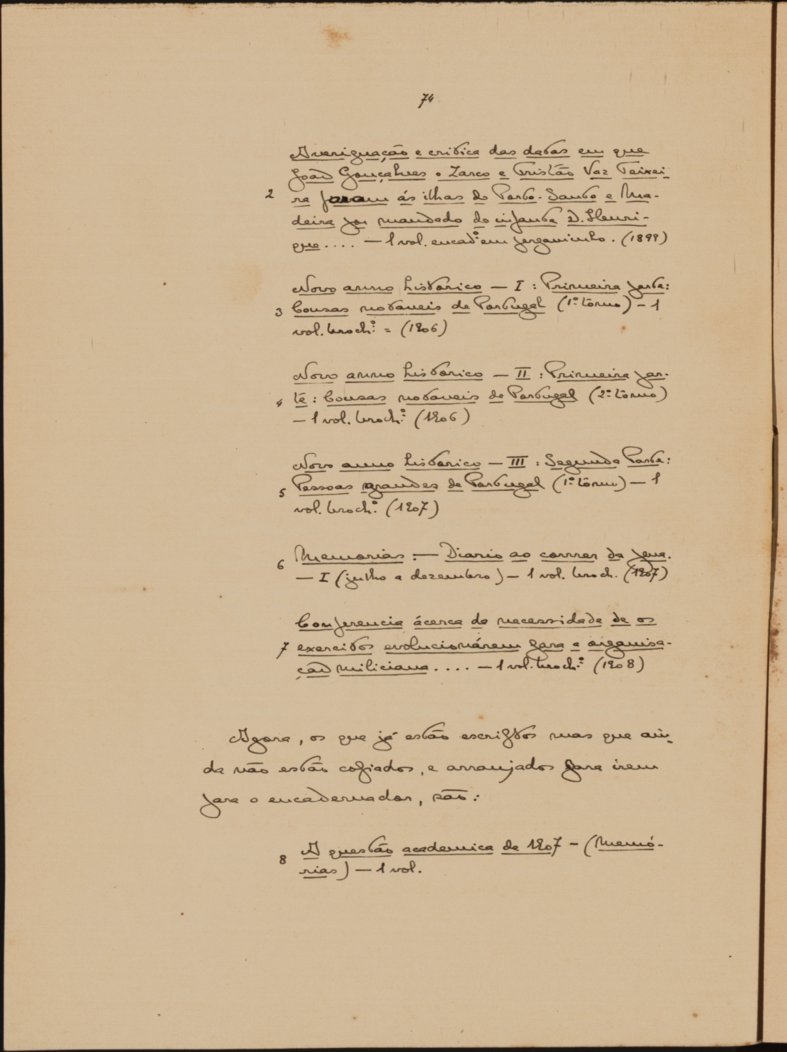 74
Averiguação e critica das datas em que
João Gonçalves o Zarco e Tristão Vaz Teixei-
2 ra foram ás ilhas do Porto-Santo e Ma-
deira por mandado do infante D. Henri-
que.... — 1 vol. encad.º em pergaminho. (1899)
Novo anno historico — I : Primeira parte:
3 Cousas notaveis de Portugal (1.º tômo) — 1
vol. broch.º = (1906)
Novo anno historico — II : Primeira par-
4 te : Cousas notaveis de Portugal (2.º tômo)
— 1 vol. broch.º (1906)
Novo anno historico — III : Segunda Parte:
5 Pessoas grandes de Portugal (1.º tômo) — 1
vol. broch.º (1907)
6 Memorias — Diario ao correr da pena.
— I (julho a dezembro) — 1 vol. broch. (1907)
Conferencia ácerca da necessidade de os
7 exercitos evolucionárem para a organisa-
ção miliciana.... — 1 vol. broch.º (1908)
Agora, os que já estão escriptos mas que ain-
da não estão copiados, e arranjados para irem
para o encadernador, são:
8 A questão academica de 1907 — (Memó-
rias) — 1 vol.